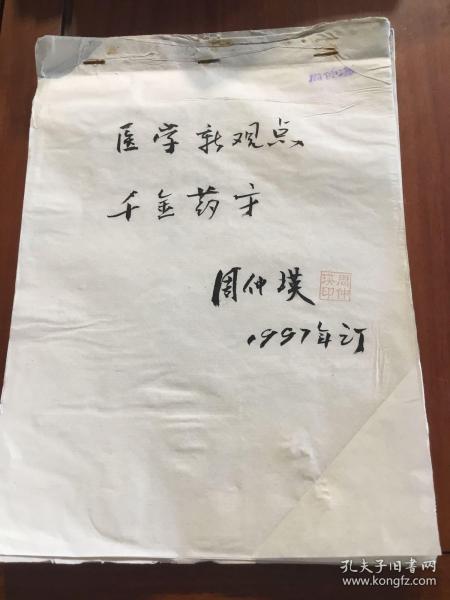 医学新观点
千金药方
周仲瑛
周仲瑛印
1997年订
孔夫子旧书网
www.kongfz.com